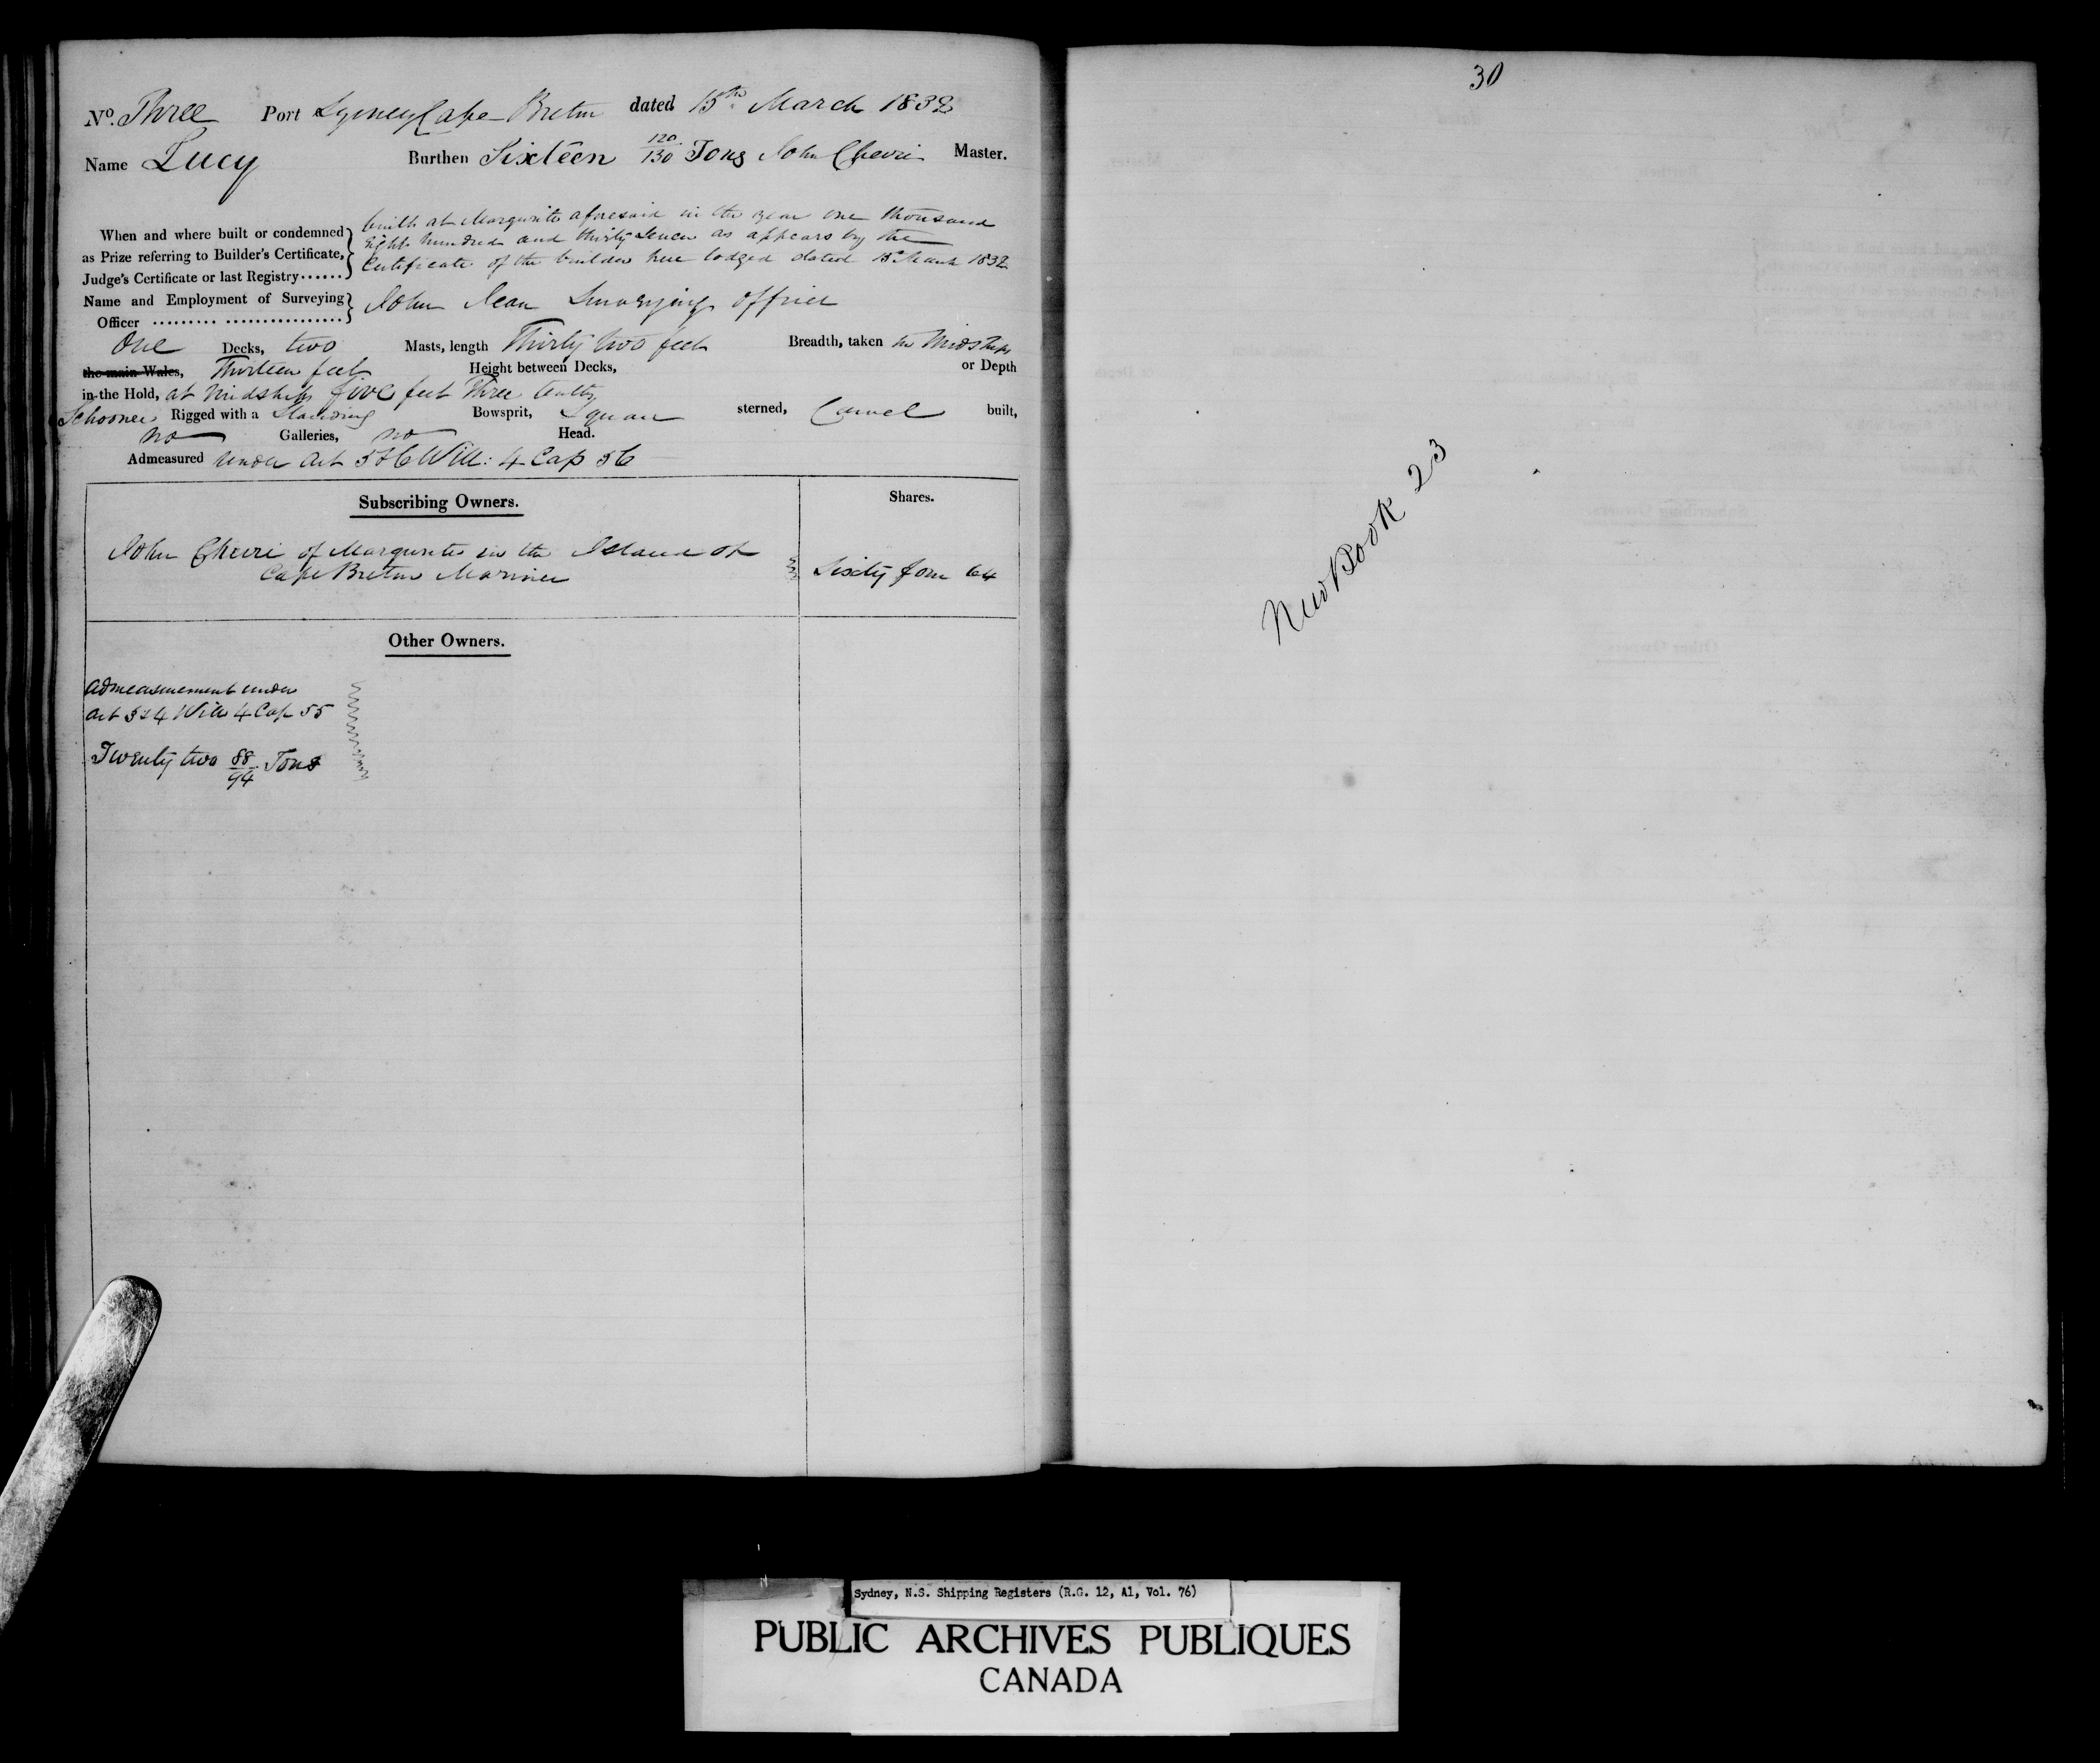 No. Three Port Sydney Cape Breton dated 15th March 1838
Name Lucy Burthen Sixteen 120/130 Tons John Cheverie Master.
When and where built or condemned as Prize referring to Builder's Certificate, Judge's Certificate or last Registry......
built at Margurite aforesaid in the year one thousand
Eight hundred and thirty seven as appears by the
Certificate of the builder here lodged dated 15 March 1838
Name and Employment of Surveying Officer ......... ................ John Jean Surveying officer
One Decks, two Masts, length Thirty two feet Breadth, taken in Midships
the main Wales, Thirteen feet Height between Decks, or Depth
in the Hold, at Midships five feet Three tenths
Schooner Rigged with a Standing Bowsprit, Square sterned, Carvel built,
no Galleries, no Head.
Admeasured under Act 5 & 6 Will: 4 Cap 56
Subscribing Owners. Shares.
John of Margurite in the Island of
Cape Breton Mariner Sixty four 64
Other Owners.
Admeasurement under
Act 3 & 4 Will 4 Cap 55
Twenty two 88/94 Tons
30
New Book 23
Sydney, N.S. Shipping Registers (R.G. 12, A1, Vol. 76)
PUBLIC ARCHIVES PUBLIQUES
CANADA